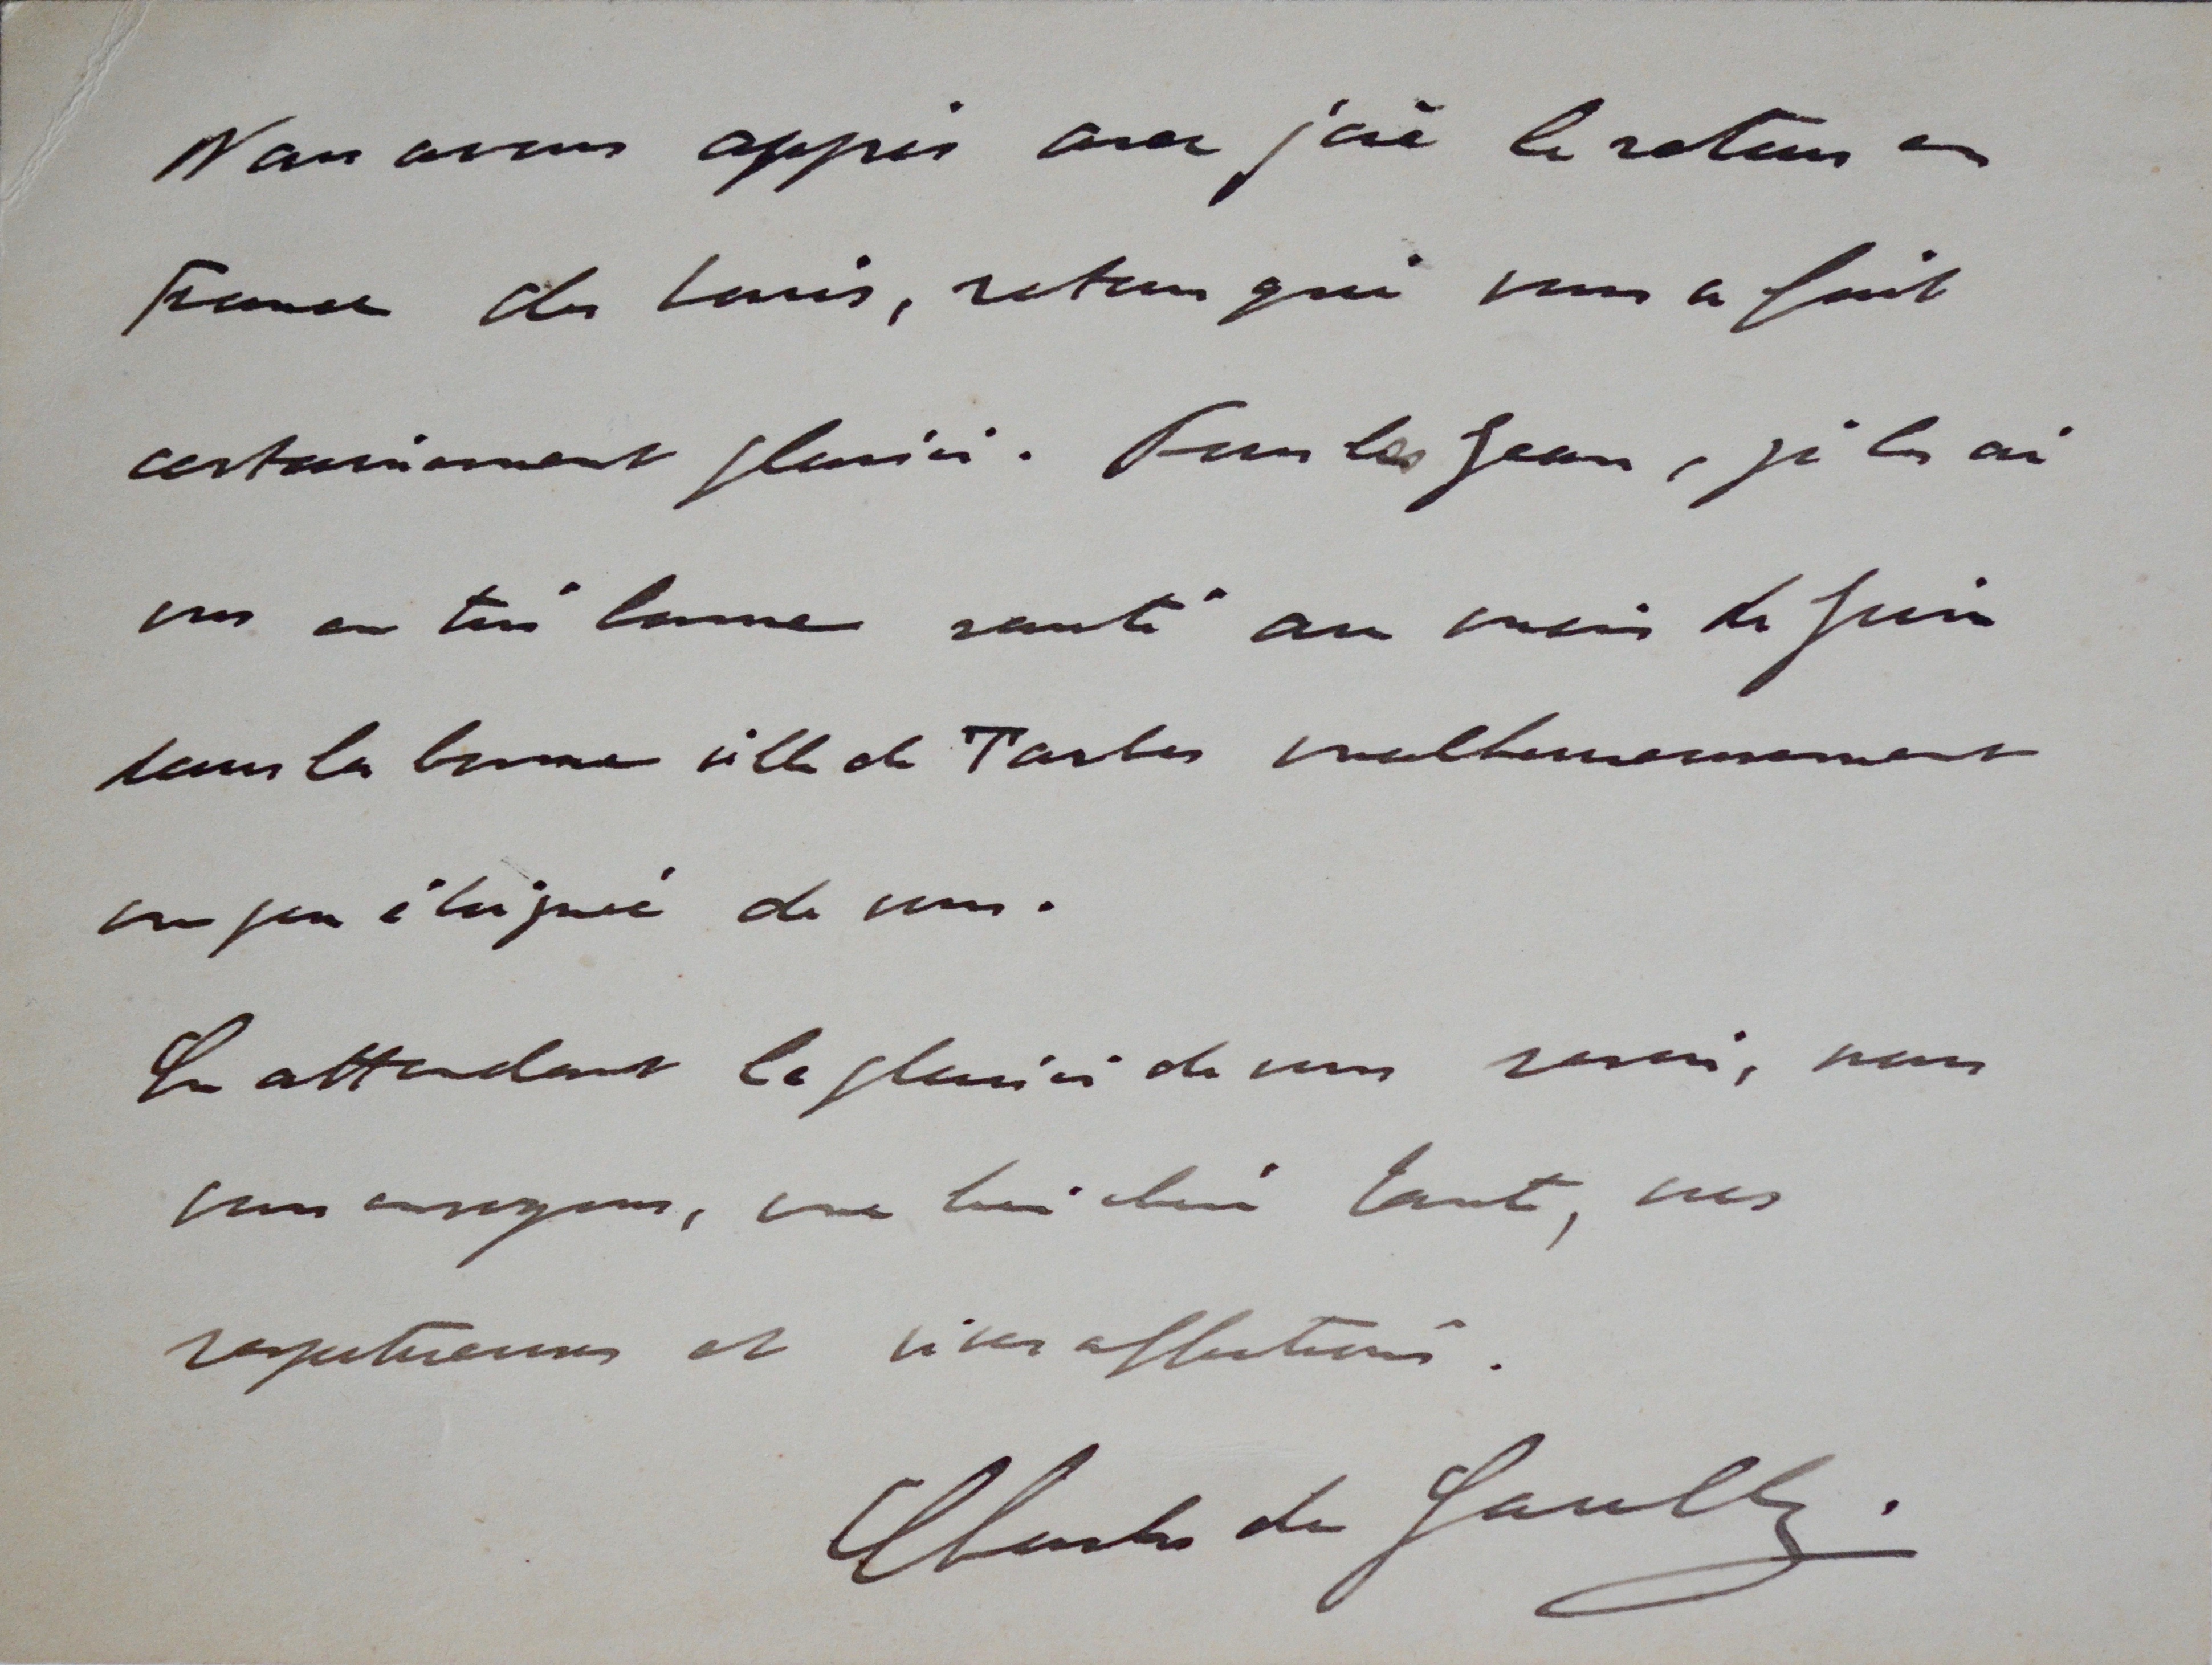 Nous avons appris avec joie le retour en
France des Louis, retour qui vous a fait
certainement plaisir. Tous les Jean, je les ai
vus en très bonne santé au mois de Juin
dans la bonne ville de Tarbes malheureusement
un peu éloignée de vous.
En attendant le plaisir de vous revoir, nous
vous envoyons, ma bien chère Tante, nos
respectueuses et vives affections.
Charles de Gaulle.